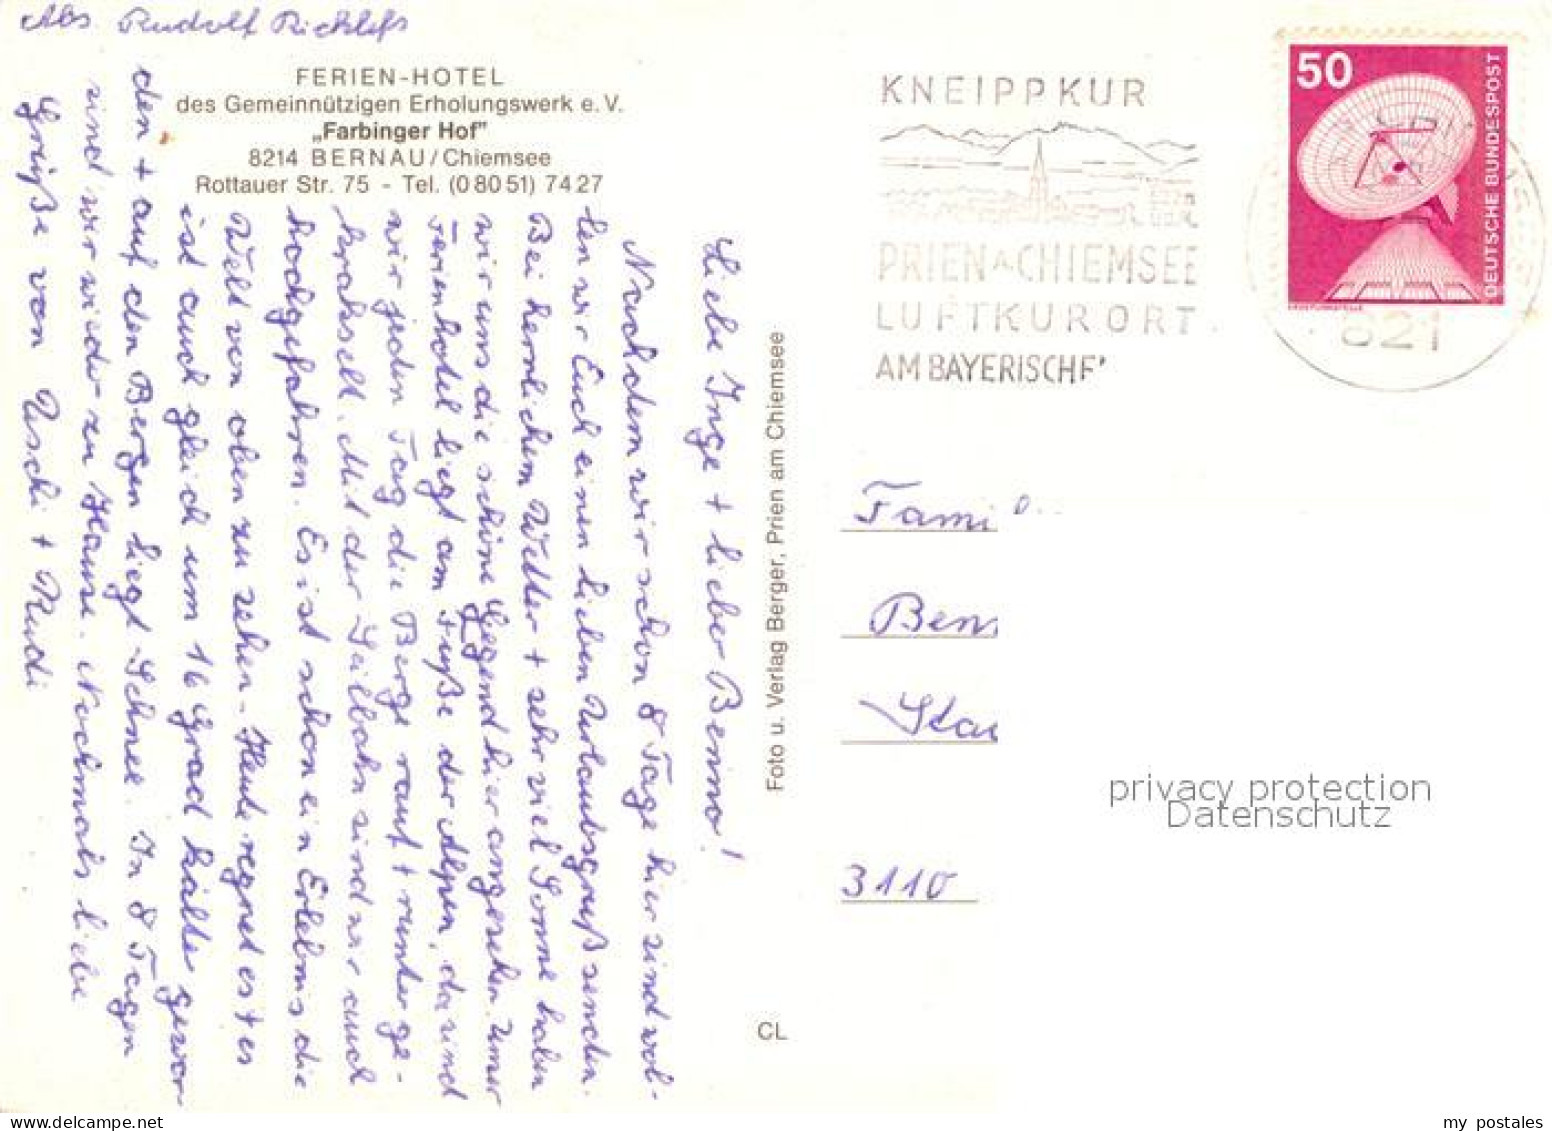 Abs. Rudolf Ricklefs
FERIEN-HOTEL
des Gemeinnützigen Erholungswerk e. V.
„Farbinger Hof"
8214 BERNAU/Chiemsee
Rottauer Str. 75 - Tel. (0 80 51) 74 27
Liebe Inge + lieber Benno!
Nachdem wir schon 8 Tage hier sind wol-
len wir Euch einen lieben Urlaubsgruß senden.
Bei herrlichem Wetter + sehr viel Sonne haben
wir uns die schöne Gegend hier angesehen. Unser
Ferienhotel liegt am Fuße der Alpen, da sind
wir jeden Tag die Berge rauf + runter ge-
krakselt. Mit der Seilbahn sind wir auch
hochgefahren. Es ist schon ein Erlebnis die
Welt von oben zu sehen. Heute regnet es + es
ist auch gleich um 16 Grad kälter gewor-
den + auf den Bergen liegt Schnee. In 8 Tagen
sind wir wieder zu Hause. Nochmals liebe
Grüße von Uschi + Rudi
Foto u. Verlag Berger, Prien am Chiemsee
CL
KNEIPPKUR
PRIEN A CHIEMSEE
LUFTKURORT
AM BAYERISCHE
50
DEUTSCHE BUNDESPOST
821
Fami
Ben
3110
privacy protection
Datenschutz
my postales